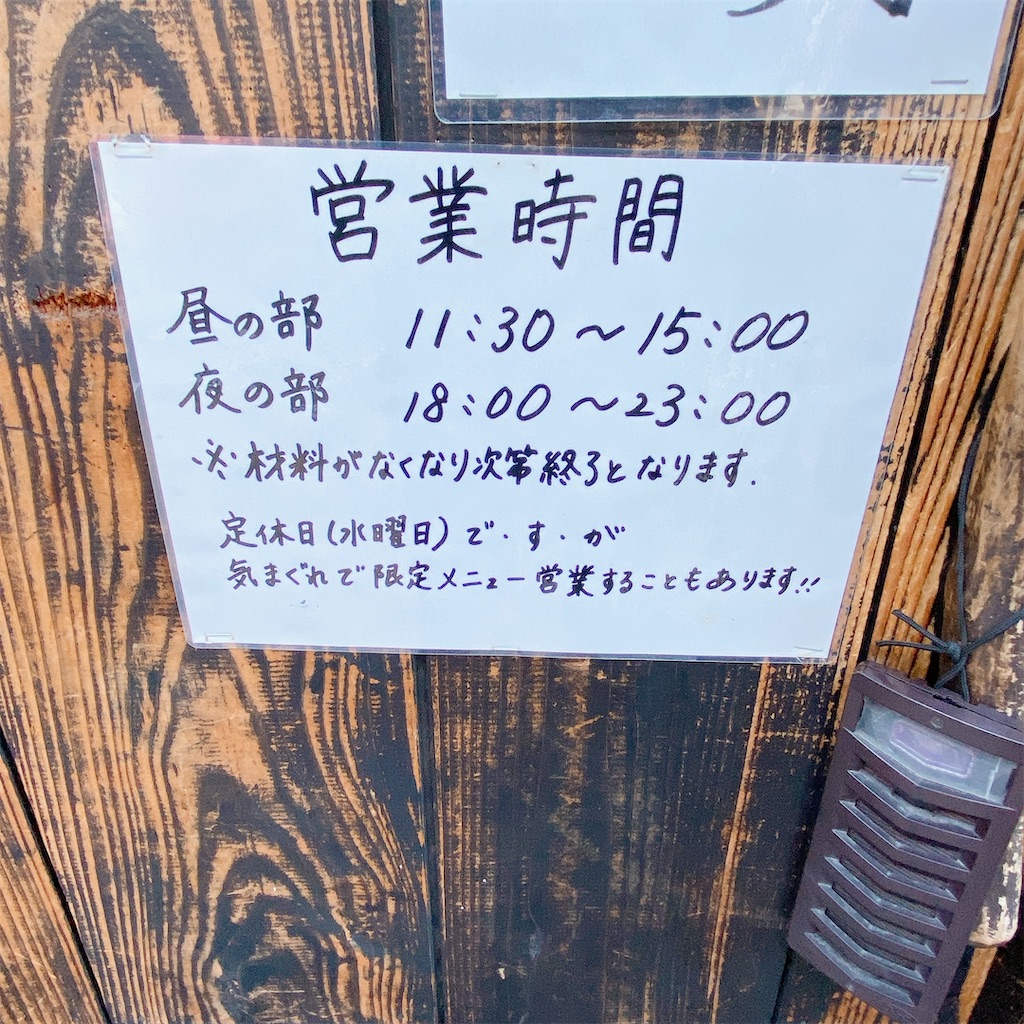 営業時間
昼の部 11:30～15:00
夜の部 18:00～23:00
※材料がなくなり次第終了となります.
定休日(水曜日)で・す・が
気まぐれで限定メニュー営業することもあります!!